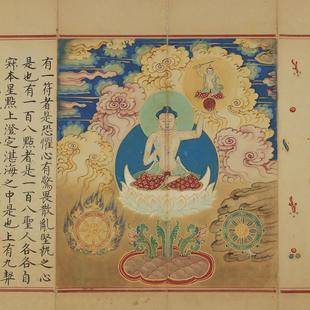 有一符者是恐懼心有驚畏散亂堅執之心
是也有一百八點者是一百八聖人各各自
本呈點上澄定湛海之中是也上有九